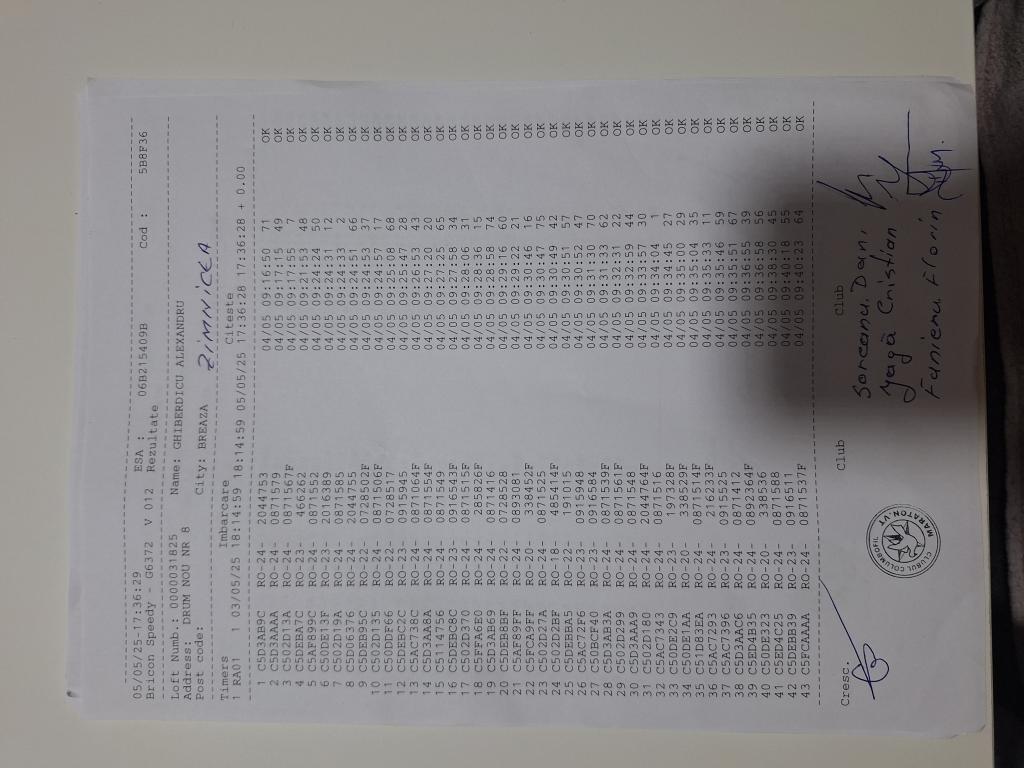 05/05/25-17:36:29
Bricon Speedy - G6372 V 012 ESA : 06B215409B Cod : 5B8F36
Rezultate
Loft Numb.: 0000031825 Name: GHIBERDICU ALEXANDRU
Address: DRUM NOU NR 8
Post code: City: BREAZA ZIMNICEA
Timers Imbarcare Citeste
1 RA01 1 03/05/25 18:14:59 18:14:59 05/05/25 17:36:28 17:36:28 + 0.00
1 C5D3AB9C RO-24- 2044753 04/05 09:16:50 71 OK
2 C5D3AAAA RO-24- 0871579 04/05 09:17:15 49 OK
3 C502D13A RO-24- 0871567F 04/05 09:17:55 7 OK
4 C5DEBA7C RO-23- 466262 04/05 09:21:53 48 OK
5 C5AF899C RO-24- 0871552 04/05 09:24:24 50 OK
6 C50DE13F RO-24- 2016389 04/05 09:24:31 12 OK
7 C502D19A RO-24- 0871585 04/05 09:24:33 2 OK
8 C50D1376 RO-24- 2044755 04/05 09:24:51 66 OK
9 C5DEB95C RO-22- 0728502F 04/05 09:24:53 37 OK
10 C502D135 RO-24- 0871506F 04/05 09:24:57 17 OK
11 C50DDF66 RO-22- 0728517 04/05 09:25:08 68 OK
12 C5DEBC2C RO-23- 0915945 04/05 09:25:47 28 OK
13 C5AC738C RO-24- 0871064F 04/05 09:26:53 43 OK
14 C5D3AA8A RO-24- 0871554F 04/05 09:27:20 20 OK
15 C5114756 RO-24- 0871549 04/05 09:27:25 65 OK
16 C5DEBC8C RO-23- 0916543F 04/05 09:27:58 34 OK
17 C502D370 RO-24- 0871515F 04/05 09:28:06 31 OK
18 C5FFA6E0 RO-24- 285826F 04/05 09:28:36 15 OK
19 C5D3AB69 RO-24- 0871416 04/05 09:28:58 74 OK
20 RO-22- 0728528 04/05 09:29:16 60 OK
21 C5AF89FF RO-24- 0893081 04/05 09:29:22 21 OK
22 C5FCA9FF RO-20- 338452F 04/05 09:30:46 16 OK
23 C502D27A RO-24- 0871525 04/05 09:30:47 75 OK
24 C502D2BF RO-18- 485414F 04/05 09:30:49 42 OK
25 C5DEBBA5 RO-22- 191015 04/05 09:30:51 57 OK
26 C5AC72F6 RO-23- 0915948 04/05 09:30:52 47 OK
27 C50BCF40 RO-23- 0916584 04/05 09:31:30 70 OK
28 C5D3AB3A RO-24- 0871539F 04/05 09:32:23 62 OK
29 C502D299 RO-24- 0871561F 04/05 09:32:31 22 OK
30 C5D3AAA9 RO-24- 0871540 04/05 09:32:59 44 OK
31 C502D180 RO-24- 2044764F 04/05 09:33:57 30 OK
32 C5AC7343 RO-24- 0871516 04/05 09:34:04 1 OK
33 C50DE299 RO-23- 197328F 04/05 09:34:45 27 OK
34 C50DE1AA RO-20- 338529F 04/05 09:35:00 29 OK
35 C51DB3EA RO-24- 0871514F 04/05 09:35:04 35 OK
36 C5AC7293 RO-23- 216233F 04/05 09:35:33 11 OK
37 C5AC7396 RO-23- 0915525 04/05 09:35:46 59 OK
38 C5D3AAC6 RO-24- 0871412 04/05 09:35:51 67 OK
39 C5ED4B35 RO-24- 0892364F 04/05 09:36:55 39 OK
40 C50DE323 RO-20- 338536 04/05 09:36:58 56 OK
41 C5ED4C25 RO-24- 0871588 04/05 09:38:30 45 OK
42 C5DEBB39 RO-23- 0916511 04/05 09:40:18 55 OK
43 C5FCAAAA RO-24- 0871537F 04/05 09:40:23 64 OK
Cresc. Club Club
Cristian
Florin
CLUBUL COLUMBOFIL
MARATON.VT